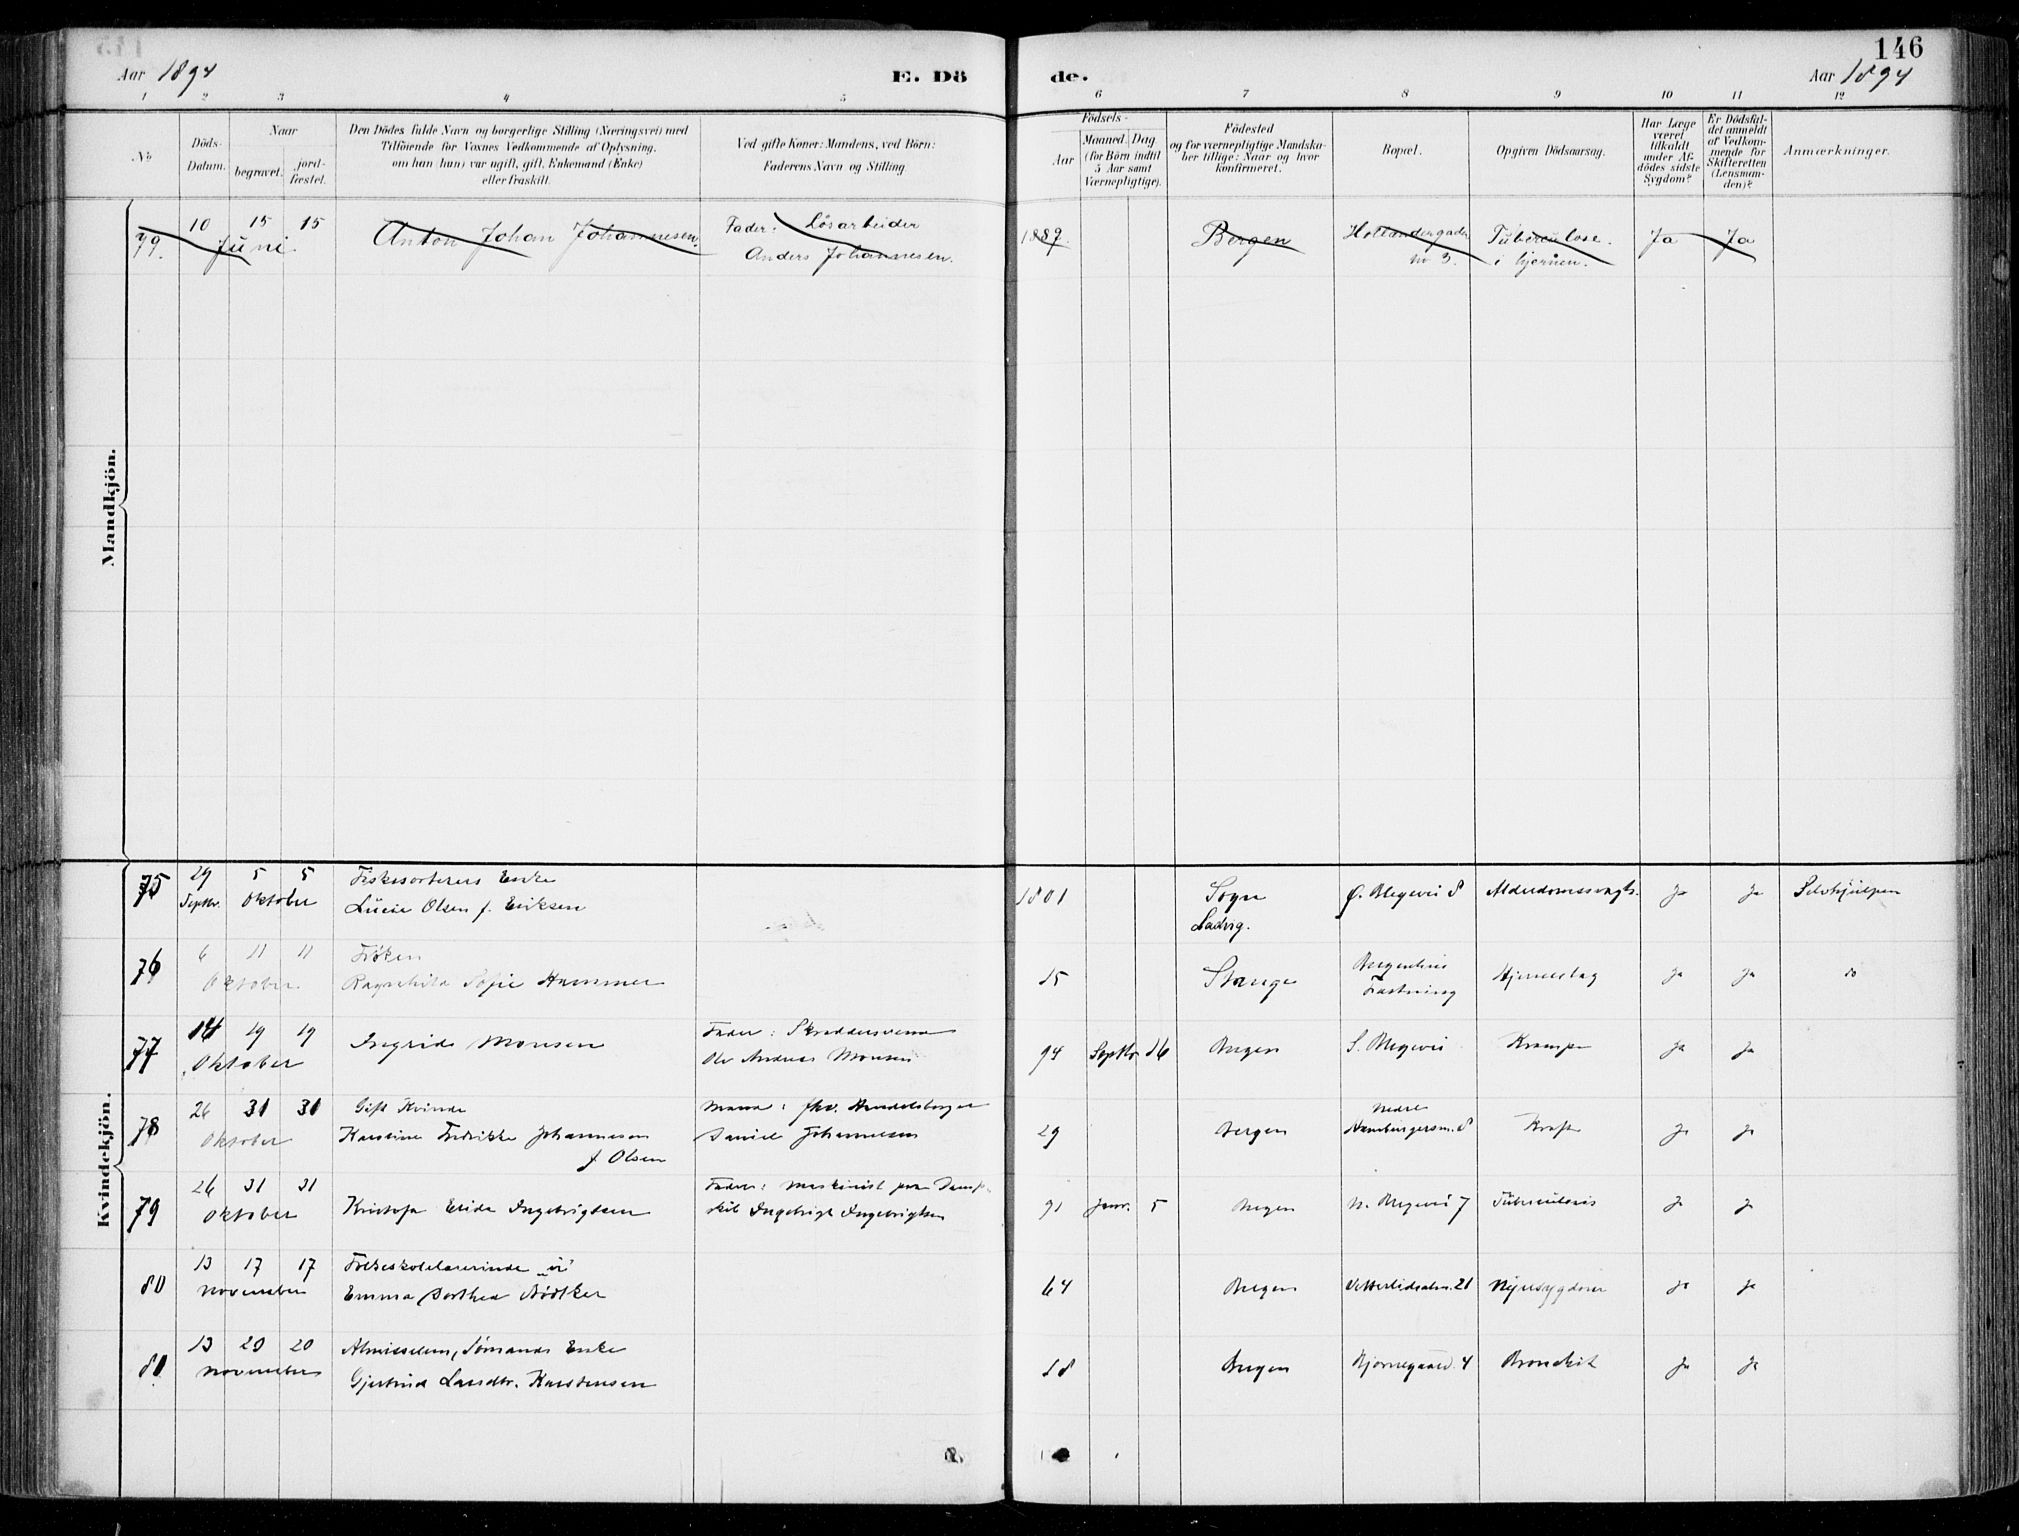 146
Aar 1894
E. Dö
de.
Aar 1894
1 2 3 4 5 6 7 8 9 10 11 12
No
Döds-
Datum.
Naar
begravet.
jord-
fæstet.
Den Dödes fulde Navn og borgerlige Stilling (Næringsvei) med
Tilföiende for Voxnes Vedkommende af Oplysning,
om han (hun) var ugift, gift, Enkemand (Enke)
eller fraskilt.
Ved gifte Koner: Mandens, ved Börn:
Faderens Navn og Stilling.
Födsels-
Aar
Maaned. Dag
(for Börn indtil
5 Aar samt
Værnepligtige).
Födested
og for værnepligtige Mandska-
ber tillige: Naar og hvor
konfirmeret.
Bopæl.
Opgiven Dödsaarsag.
Har Læge
været
tilkaldt
under Af-
dödes sidste
Sygdom?
Er Dödsfal-
det anmeldt
af Vedkom-
mende for
Skifteretten
(Lensman-
den)?
Anmærkninger.
Mandkjön.
79. 10 15 15
Juni.
Anton Johan Johannesen.
Fader: Lösarbeider
Anders Johannesen.
1889. Bergen
Hollandergaden
No 3.
Tuberculose.
i hjernen.
Ja Ja
Kvindekjön.
75 29 5 5
Septbr. Oktober
Fiskesorterers Enke
Lucie Olsen f. Eriksen
1801
Sogn
Ladvig.
Ø. Blegevei 8 Alderdomssvagh. Ja Ja Selvhjulpen
76 6 11 11
Oktober
Frøken
Ragnhild Sofie Hammer
15 Stange
Bergenhus
Fæstning
Hjerneslag Ja Ja do
77 14 19 19
Oktober
Ingrid Monsen
Fader: Skræddersvend
Ole Andreas Monsen
94 Septbr 16 Bergen S. Blegevei Krampe Ja Ja
78 26 31 31
Oktober
Gift Kvinde
Karoline Fredrikke Johannesen
f Olsen
Mand: fhv. Handelsborger
Daniel Johannesen
29 Bergen
Nedre
Hamburgersm. 8
Kræft Ja Ja
79 26 31 31
Oktober
Kristofa Elida Ingebrigtsen
Fader: Maskinist paa Damp-
skib Ingebrigt Ingebrigtsen
91 Janr. 5 Bergen N. Blegevei 7 Tuberculosis Ja Ja
80 13 17 17
November
Folkeskolelærerinde
Emma Dorthea Bödtker
64 Bergen Vetterlidsalm. 21 Nyresygdom Ja Ja
81 13 20 20
November
Almisselem, Sømands Enke
Gjertrud Lambr. Karstensen
18 Bergen Bjørnegaard. 4 Bronchit Ja Ja